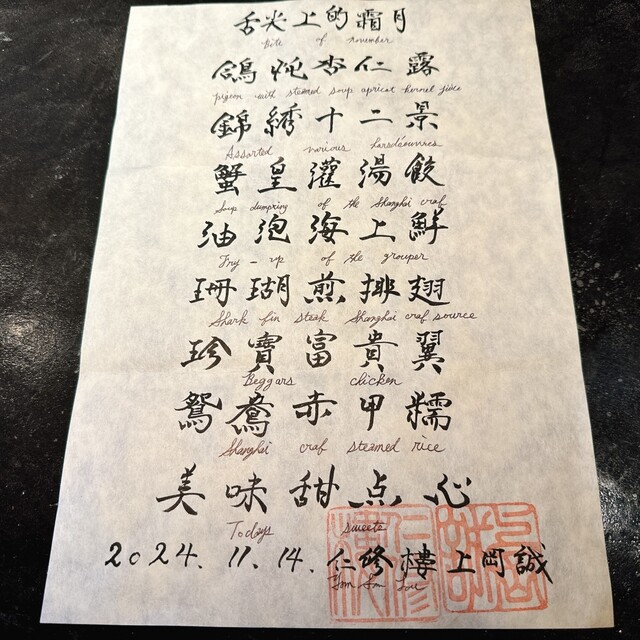 舌尖上的霜月
Bite of november
鴿炖杏仁露
pigeon with steamed soup apricot kernel juice
錦綉十二景
Assorted various
蟹皇灌湯餃
Soup dumpring of the Shanghai craf
油泡海上鮮
Fry-up of the grouper
珊瑚煎排翅
Shark fin steak Shanghai craf source
珍寶富貴翼
Beggars chicken
鴛鴦赤甲糯
Shanghai craf steamed rice
美味甜点心
Todays sweets
2024. 11. 14. 仁修樓 上岡誠